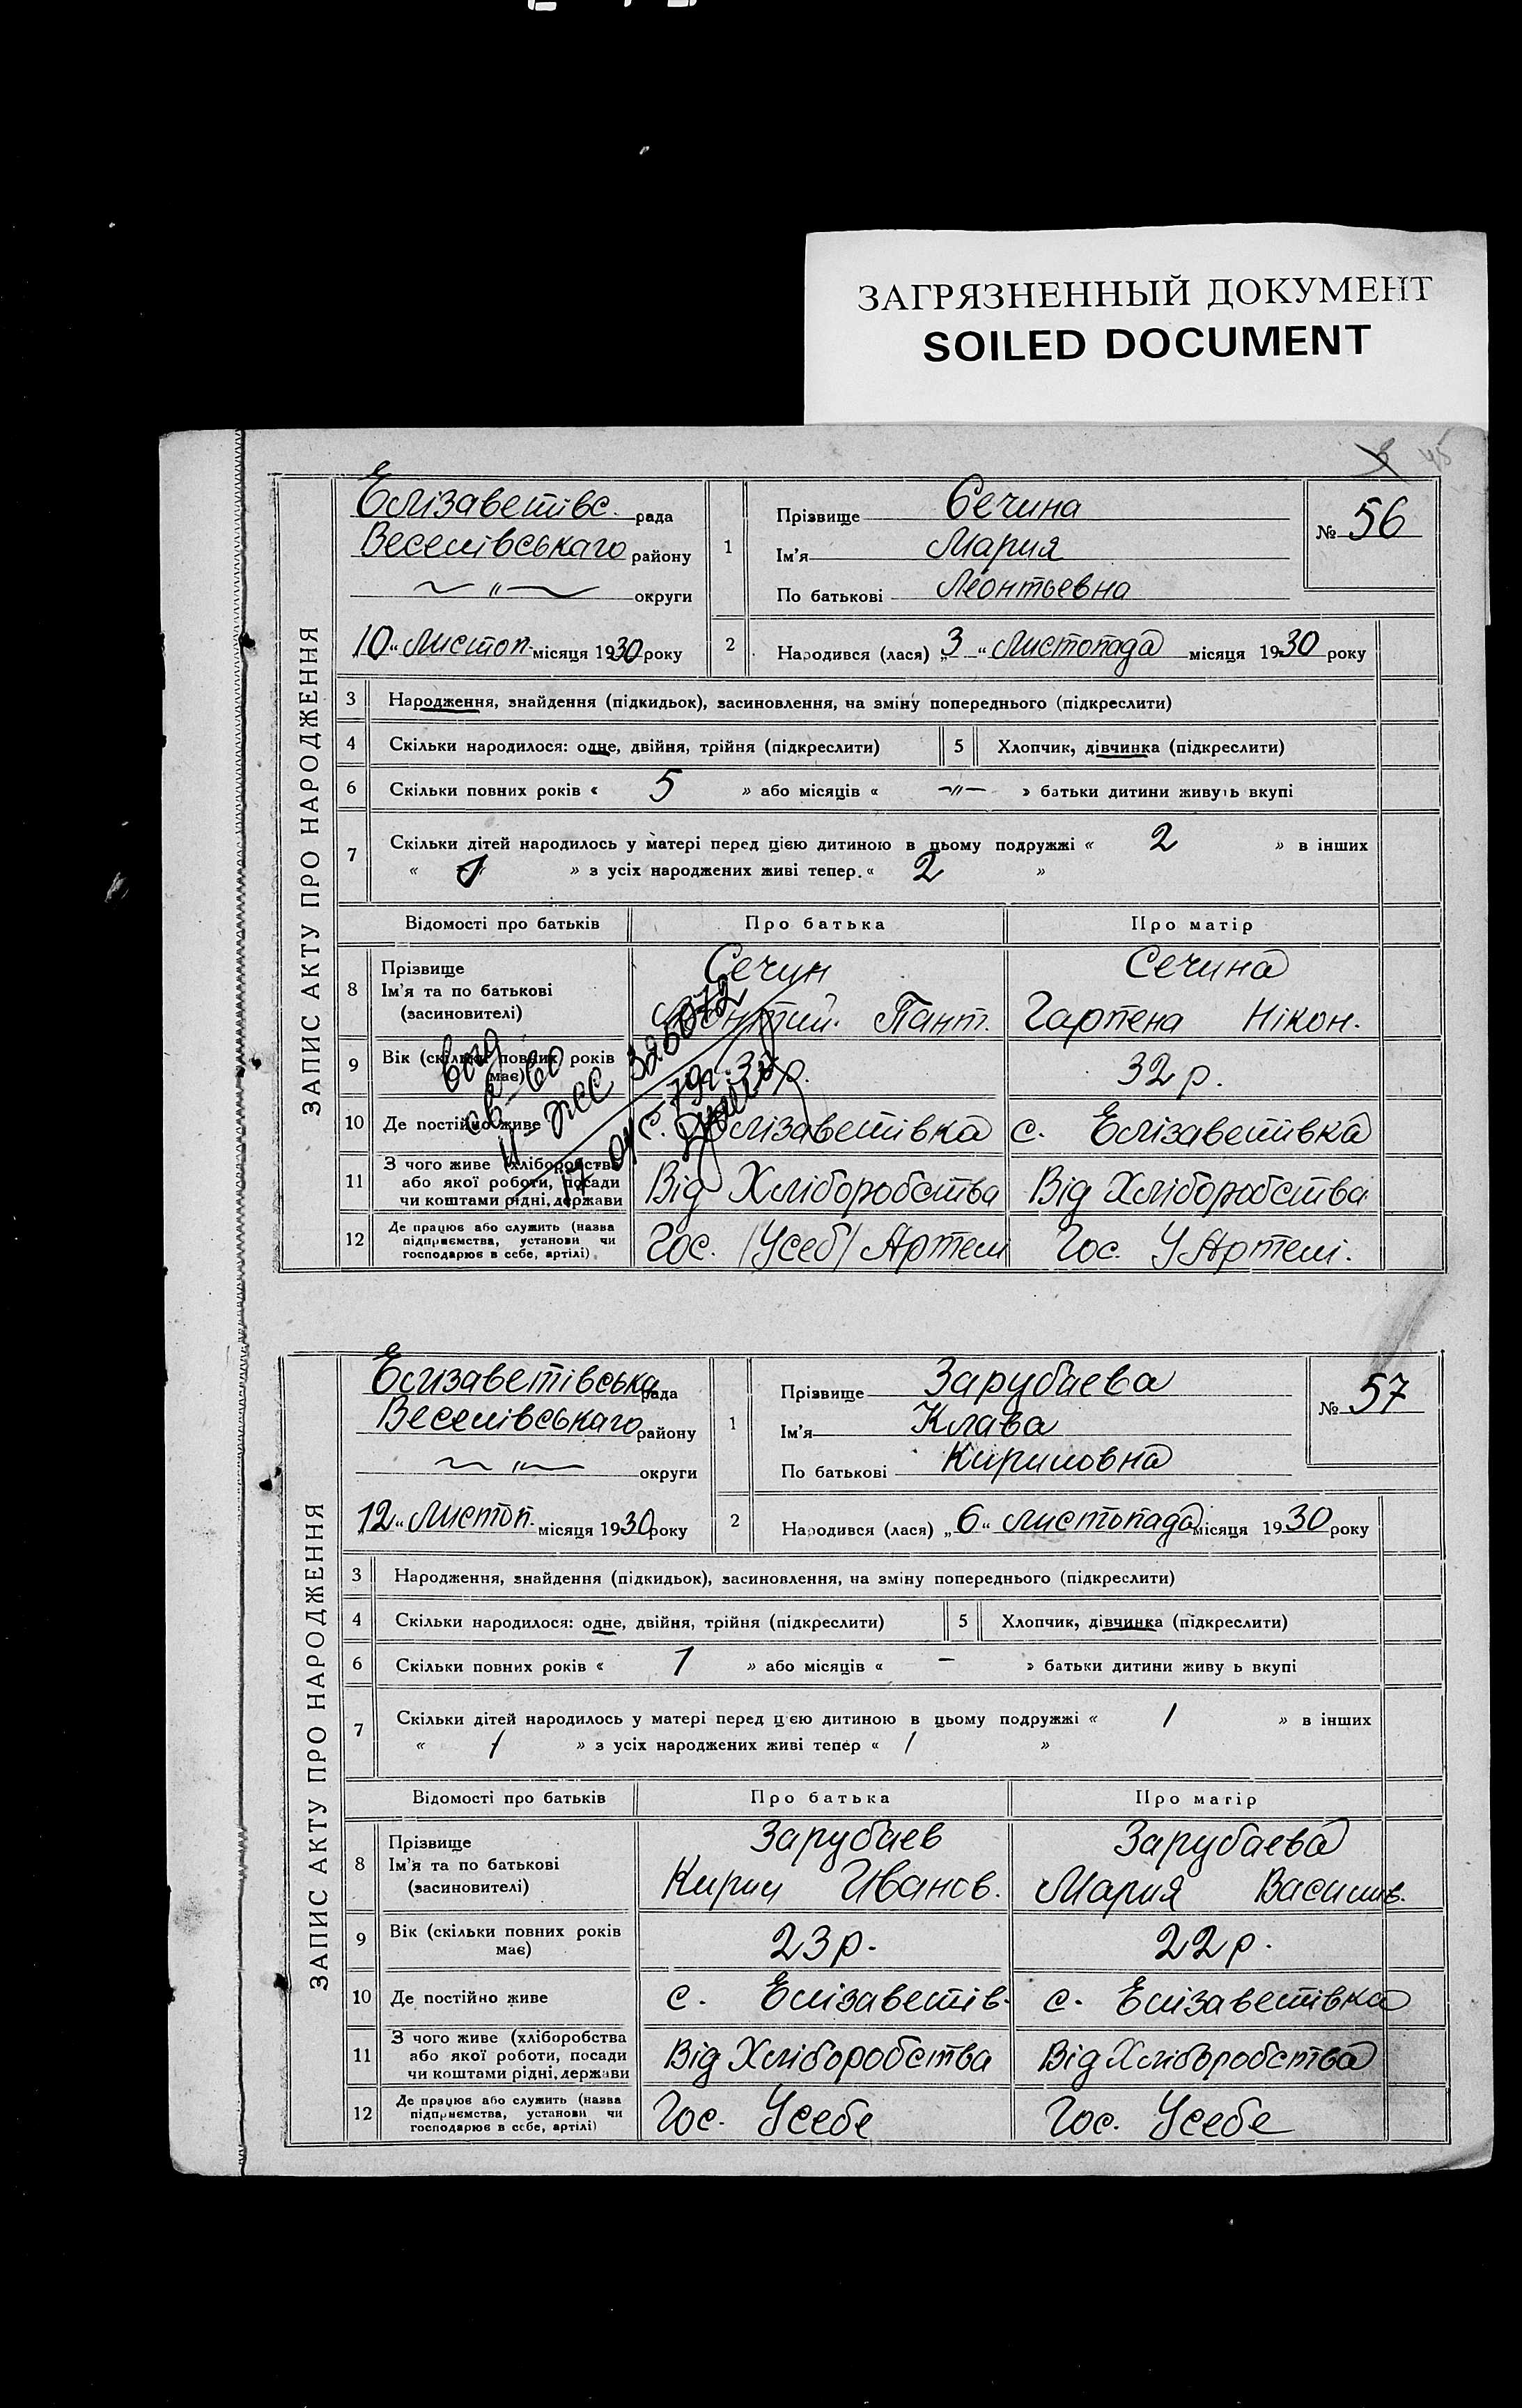 ЗАГРЯЗНЕННЫЙ ДОКУМЕНТ
SOILED DOCUMENT
45
ЗАПИС АКТУ ПРО НАРОДЖЕННЯ
Єлізаветівс. рада
Веселівськаго району
〃 округи
10 „ Листоп. місяця 1930 року
1 Прізвище Сечина
Ім'я Мария
По батькові Леонтьевна
№ 56
2 Народився (лася) „3“ Листопада місяця 1930 року
3 Народження, знайдення (підкидьок), засиновлення, на зміну попереднього (підкреслити)
4 Скільки народилося: одне, двійня, трійня (підкреслити) 5 Хлопчик, дівчинка (підкреслити)
6 Скільки повних років « 5 » або місяців « -〃- » батьки дитини живуть вкупі
7 Скільки дітей народилось у матері перед цією дитиною в цьому подружжі « 2 » в інших
« » з усіх народжених живі тепер. « 2 »
Відомості про батьків Про батька Про матір
8 Прізвище Сечин Сечина
Ім'я та по батькові Пант. Гарпена Нікон.
(засновителі)
9 Вік (скільки повних років р. 32 р.
має)
10 Де постійно живе с. Єлізаветівка с. Єлізаветівка
11 З чого живе (хліборобства
або якої роботи, посади Від Хліборобства Від Хліборобства
чи коштами рідні, держави
12 Де працює або служить (назва
підприємства, установи чи Гос. /Усеб/ Артелі Гос. У Артелі.
господарює в себе, артілі)
325072
ЗАПИС АКТУ ПРО НАРОДЖЕННЯ
Єлізаветівська рада
Веселівськаго району
〃 округи
12 „ Листоп. місяця 1930 року
1 Прізвище Зарубаева
Ім'я Клава
По батькові Кириловна
№ 57
2 Народився (лася) „6“ листопада місяця 1930 року
3 Народження, знайдення (підкидьок), засиновлення, на зміну попереднього (підкреслити)
4 Скільки народилося: одне, двійня, трійня (підкреслити) 5 Хлопчик, дівчинка (підкреслити)
6 Скільки повних років « 1 » або місяців « - » батьки дитини живу ь вкупі
7 Скільки дітей народилось у матері перед цією дитиною в цьому подружжі « 1 » в інших
« / » з усіх народжених живі тепер « 1 »
Відомості про батьків Про батька Про матір
8 Прізвище Зарубаев Зарубаева
Ім'я та по батькові Кирил Иванов. Мария Василив.
(засиновителі)
9 Вік (скільки повних років 23 р. 22 р.
має)
10 Де постійно живе с. Єлізаветів. с. Єлізаветівка
11 З чого живе (хліборобства
або якої роботи, посади Від Хліборобства Від Хліборобства
чи коштами рідні, держави
12 Де працює або служить (назва
підприємства, установи чи Гос. Усебе Гос. Усебе
господарює в себе, артілі)